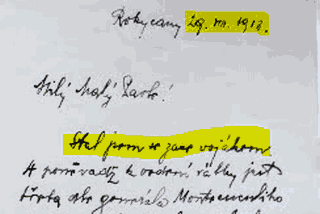 Rokycany 29. VII. 1918.
Milý Malý Pavle!
Stal jsem se zase vojákem.
A poněvadž k vedení války jest
třeba dle generála Montecucculiho